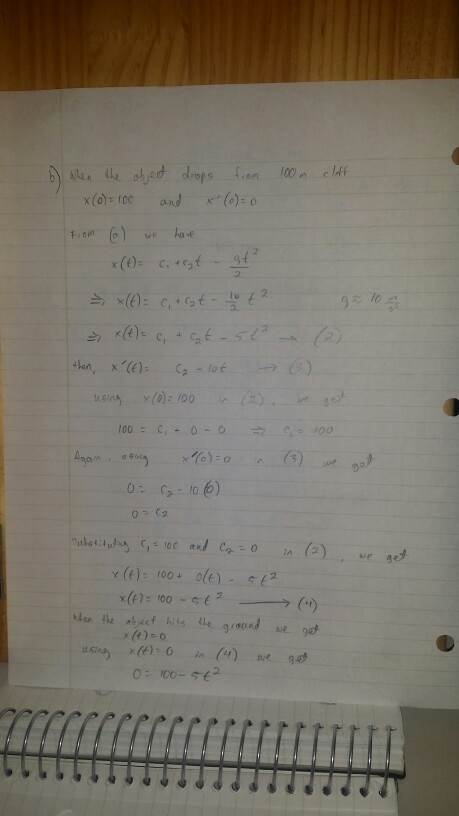 b) When the object drops from 100 m cliff
x(0)=100 and x'(0)=0
From (a) we have
x(t)= c₁ + c₂t - gt²/2
⇒ x(t)= c₁ + c₂t - 10/2 t² g≈10 m/s²
⇒ x(t)= c₁ + c₂t - 5t² → (2)
then, x'(t)= c₂ - 10t → (3)
using x(0)=100 in (2), we get
100 = c₁ + 0 - 0 ⇒ c₁ = 100
Again, using x'(0)=0 in (3) we get
0 = c₂ - 10(0)
0 = c₂
Substituting c₁=100 and c₂=0 in (2), we get
x(t)= 100 + 0(t) - 5t²
x(t)= 100 - 5t² → (4)
When the object hits the ground we get
x(t)=0
using x(t)=0 in (4) we get
0 = 100 - 5t²